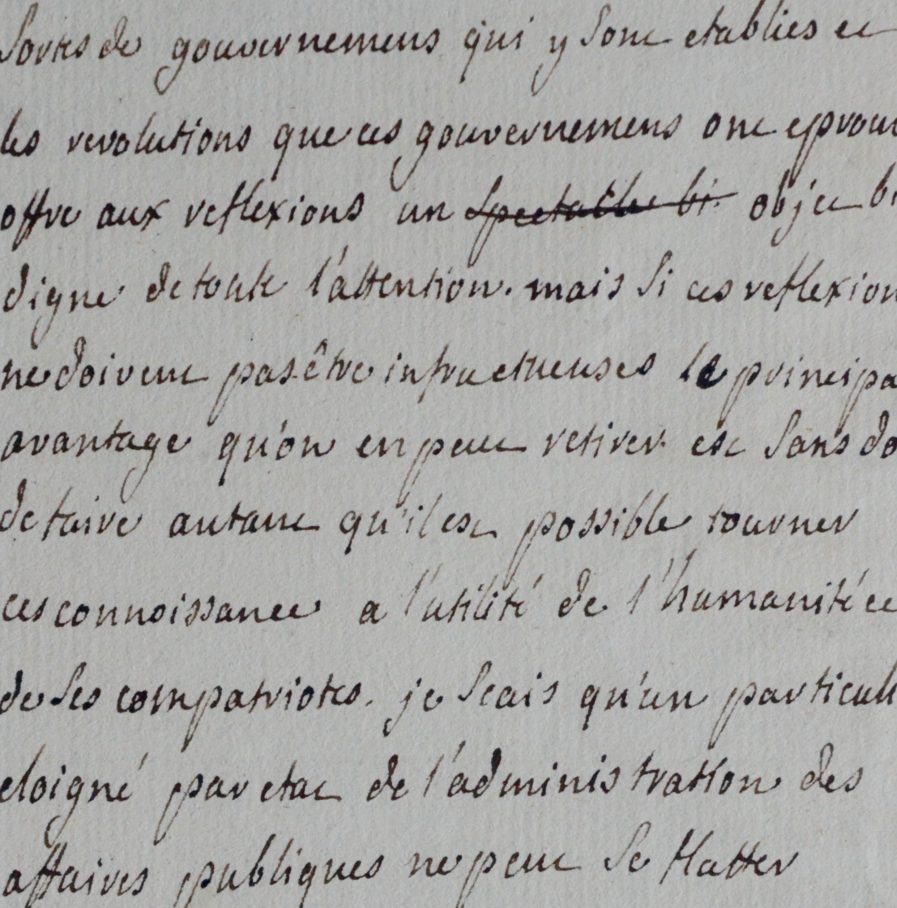 sortes de gouvernemens qui y sont etablies et
les revolutions que ces gouvernemens ont eprouv
offre aux reflexions un spectacle bi objet bi
digne de toute l'attention. mais si ces reflexion
ne doivent pas être infructueuses le principa
avantage qu'on en peut retirer est sans do
de faire autant qu'il est possible tourner
ces connoissance a l'utilité de l'humanité et
de ses compatriotes. je scais qu'un particuli
eloigné par etat de l'administration des
affaires publiques ne peut se flatter